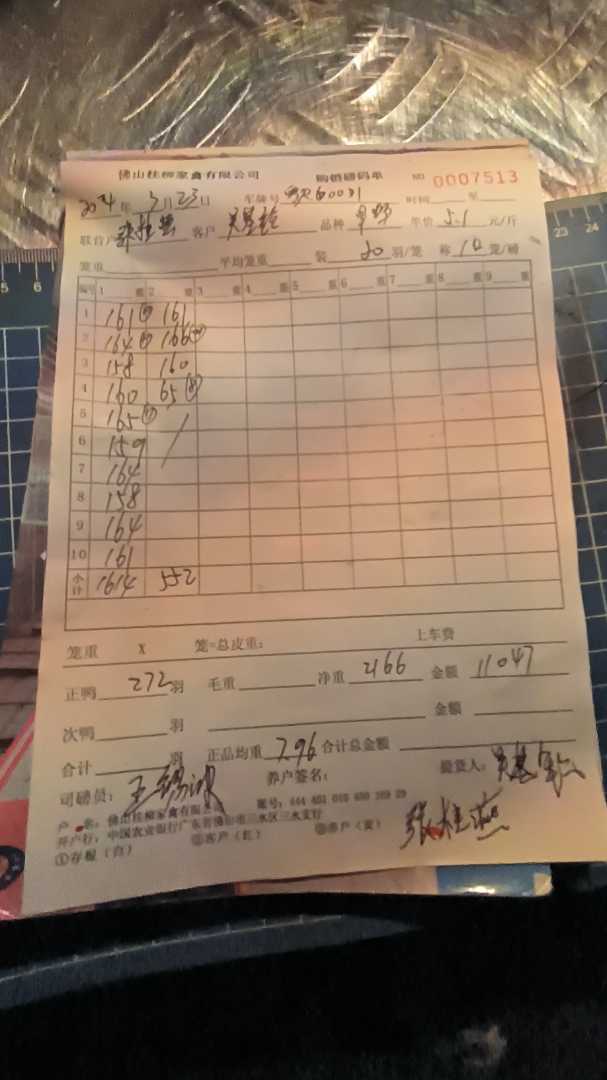 佛山桂柳家禽有限公司 购销磅码单 NO 0007513
2024年3月23日 车牌号 时间 至
联合户 客户 品种 单价 5.1 元/斤
笼重 平均笼重 装 20 羽/笼 称 10 笼/磅
编号 1 重 2 重 3 重 4 重 5 重 6 重 7 重 8 重 9 重
1 161 161
2 164 166
3 158 160
4 160 65
5 165
6 159
7 164
8 158
9 164
10 161
小计 1614 552
笼重 X 笼=总皮重： 上车费
正鸭 272 羽 毛重 净重 2166 金额 11047
次鸭 羽 金额
合计 羽 正品均重 7.96 合计总金额
司磅员： 养户签名： 提货人：
户 名：佛山桂柳家禽有限 账号：
开户行：中国农业银行广东省佛山市三水区三水支行
①存根（白） ②客户（红） ③养户（黄） 张桂燕